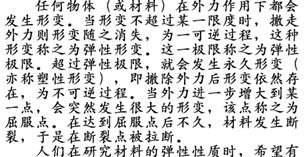 任何物体（或材料）在外力作用下都会
发生形变。当形变不超过某一限度时，撤走
外力则形变随之消失，为一可逆过程，这种
形变称之为弹性形变。这一极限称之为弹性
极限。超过弹性极限，就会发生永久形变（
亦称塑性形变），即撤除外力后形变依然存
在，为不可逆过程。当外力进一步增大到某
一点，会突然发生很大的形变，该点称之为
屈服点。在达到屈服点后不久，材料发生断
裂，于是在断裂点被拉断。
人们在研究材料的弹性性质时，希望有